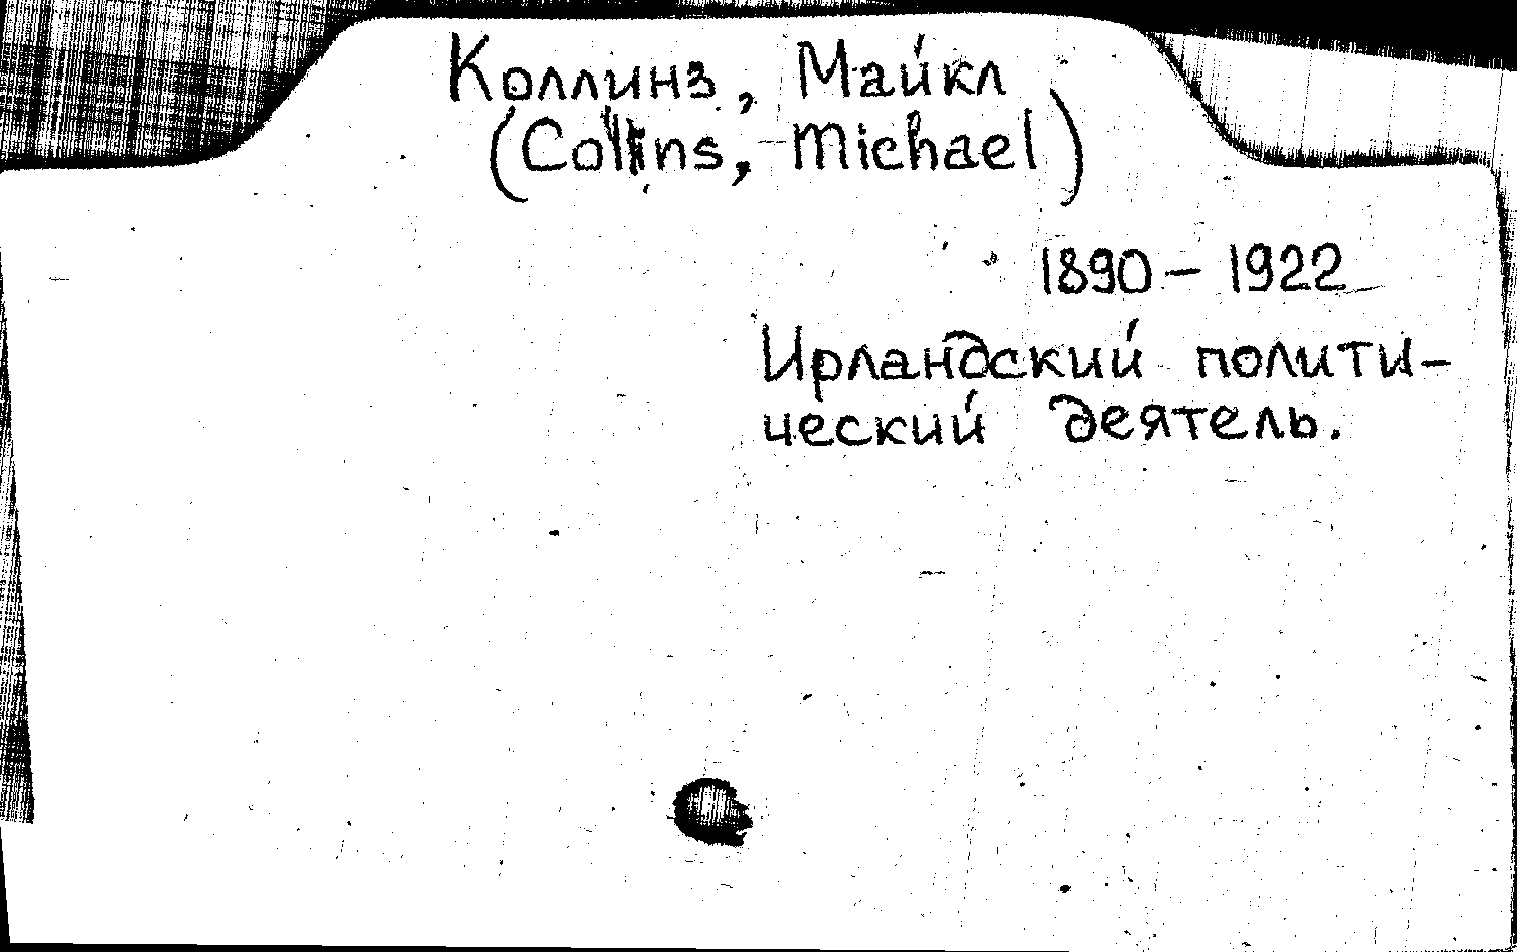 Коллинз, Майкл
(Collins, Michael)
1890 – 1922
Ирландский полити-
ческий деятель.